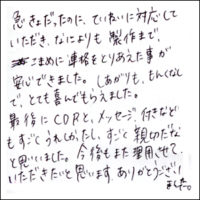 急きょだったのに、ていねいに対応して
いただき、なによりも製作まで、
こまめに連絡をとりあえた事が
安心できました。しあがりも、もんくなし
で、とても喜んでもらえました。
最後にCDRと、メッセージ付きなど
もすごくうれしかったし、すごく親切だな
と思いました。今後もまた利用させて、
いただきたいと思います。ありがとうござい
ました。